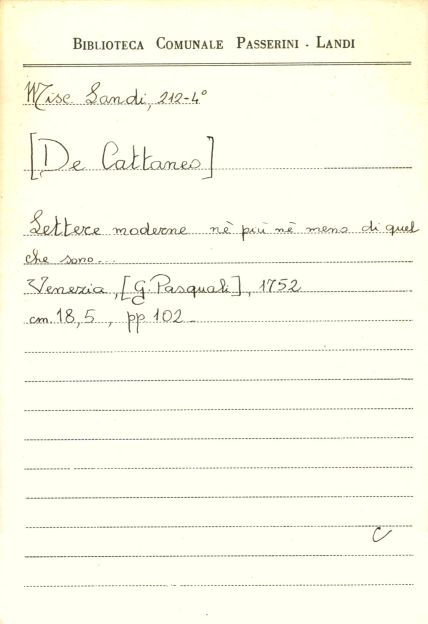 BIBLIOTECA COMUNALE PASSERINI - LANDI
Misc. Landi, 212-4°
[De Cattaneo]
Lettere moderne nè più nè meno di quel
che sono...
Venezia, [G. Pasquali], 1752
cm. 18,5, pp. 102 -
C